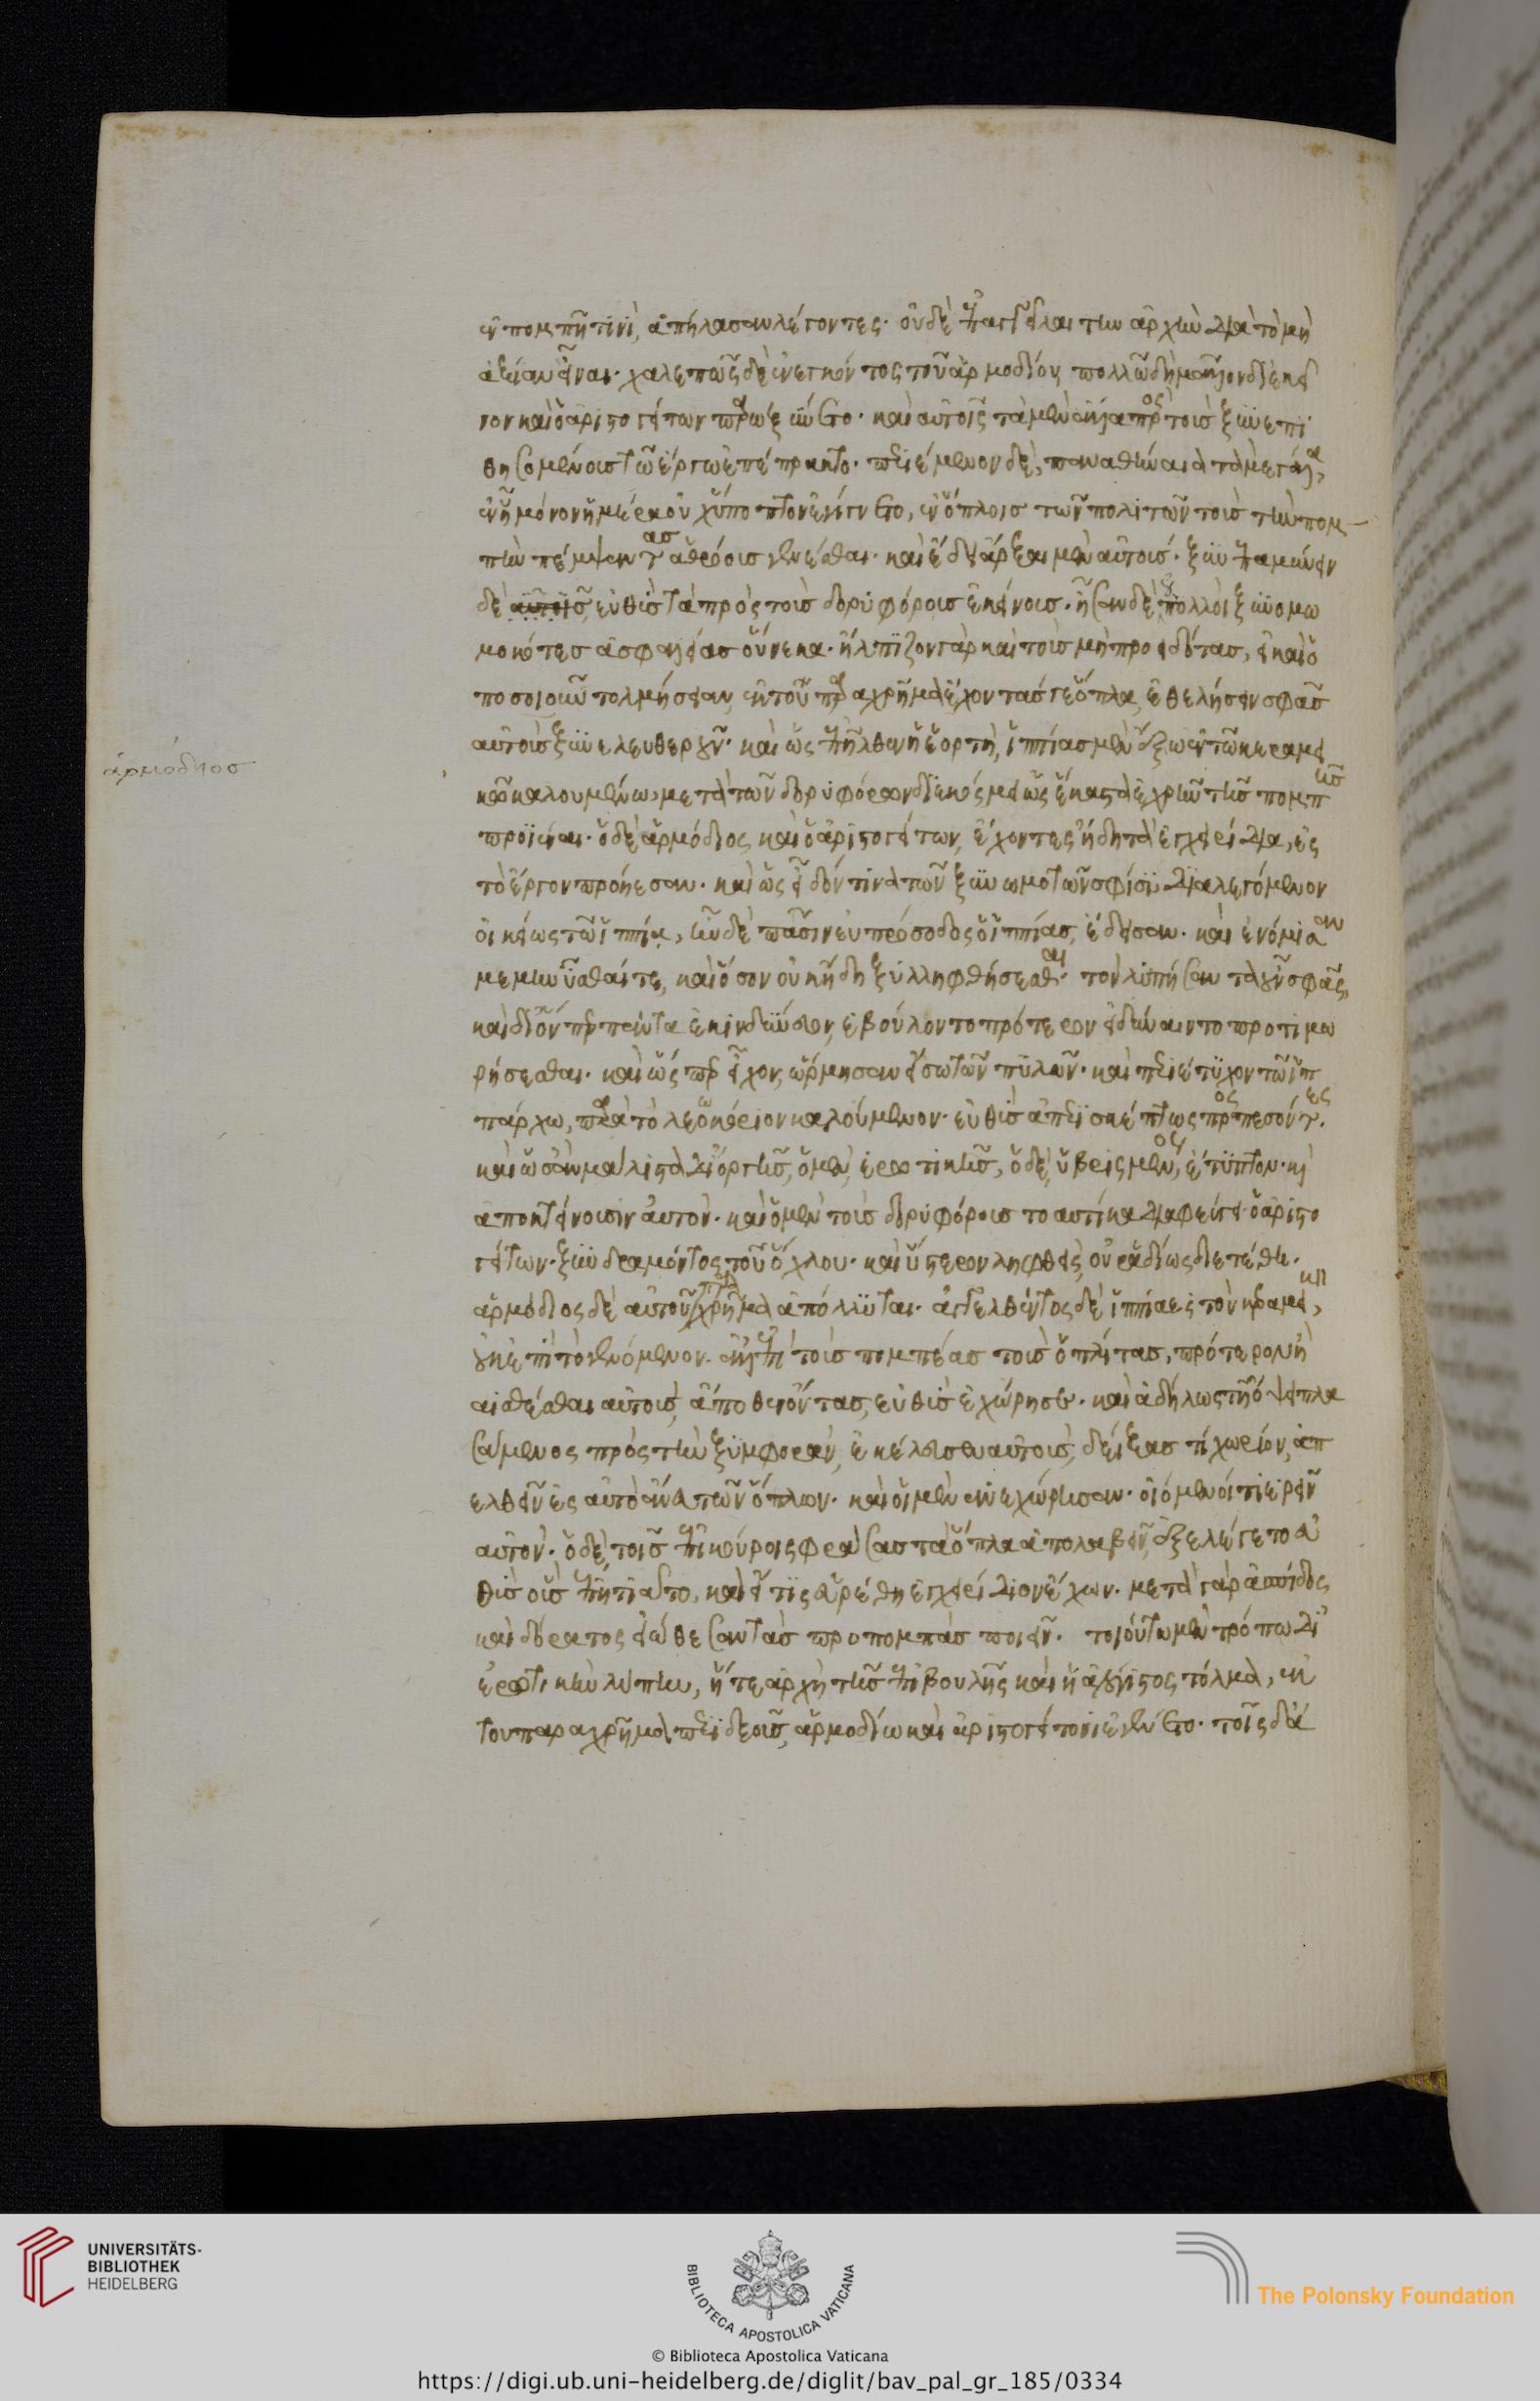 ἐν πομπῆ τινὶ, ἀπήλασαν λέγοντες· οὐδὲ ἐπαγγεῖλαι τὴν ἀρχὴν διὰ τὸ μὴ
ἀξίαν εἶναι· χαλεπῶς δὲ ἐνεγκόντος τοῦ ἁρμοδίου, πολλῶ δὴ μᾶλλον δι' ἐκεῖ
νον καὶ ὁ ἀριστογείτων παρωξύνετο· καὶ αὐτοῖς τὰ μὲν ἄλλα πρὸς τοὺς ξυνεπι
θησομένους τῶ ἔργω ἐπέπρακτο· περιέμενον δὲ, παναθήναια τὰ μεγάλα,
ἐν ᾗ μόνον ἡμέρα οὐχ ὕποπτον ἐγίγνετο, ἐν ὅπλοις τῶν πολιτῶν τοὺς τὴν πομ-
πὴν πέμψαντας ἀθρόους γενέσθαι· καὶ ἔδει ἄρξαι μὲν αὐτούς· ξυνεπαμύνειν
δὲ αὐτοῖς, εὐθὺς τὰ πρὸς τοὺς δορυφόρους ἐκείνους· ἦσαν δὲ οὐ πολλοὶ ξυνομω
μοκότες ἀσφαλείας οὕνεκα· ἤλπιζον γὰρ καὶ τοὺς μὴ προειδότας, εἰ καὶ ὁ
ποσοιοῦν τολμήσειαν, ἐκ τοῦ παραχρῆμα ἔχοντάς γε ὅπλα, ἐθελήσειν σφᾶς
αὐτοὺς ξυνελευθεροῦν· καὶ ὡς ἐπῆλθεν ἡ ἑορτὴ, ἱππίας μὲν ἔξω ἐν τῶ κεραμει
ἁρμόδιος
κῶ καλουμένω, μετὰ τῶν δορυφόρων διεκόσμει ὡς ἕκαστα ἐχρῆν τῆς πομπῆς
προϊέναι· ὁ δὲ ἁρμόδιος καὶ ὁ ἀριστογείτων, ἔχοντες ἤδη τὰ ἐγχειρίδια, ἐς
τὸ ἔργον προήεσαν· καὶ ὡς εἶδόν τινα τῶν ξυνωμοτῶν σφίσι διαλεγόμενον
οἰκείως τῶ ἱππία, ἦν δὲ πᾶσιν εὐπρόσοδος ὁ ἱππίας, ἔδεισαν· καὶ ἐνόμισαν
μεμηνῦσθαί τε, καὶ ὅσον οὐκ ἤδη ξυλληφθήσεσθαι· τὸν λυπήσαντα οὖν σφᾶς,
καὶ δι' ὅνπερ πάντα ἐκινδύνευον, ἐβούλοντο πρότερον εἰ δύναιντο προτιμω
ρήσεσθαι· καὶ ὥσπερ εἶχον, ὥρμησαν εἴσω τῶν πυλῶν· καὶ περιέτυχον τῶ ἱπ
πάρχω, παρὰ τὸ λεωκόρειον καλούμενον· εὐθὺς ἀπερισκέπτως προσπεσόντες·
καὶ ὡς ἂν μάλιστα δι' ὀργῆς, ὁ μὲν, ἐρωτικῆς, ὁ δὲ, ὑβρισμένος, ἔτυπτον· καὶ
ἀποκτείνουσιν αὐτόν· καὶ ὁ μὲν τοὺς δορυφόρους τοαυτίκα διαφεύγει ὁ ἀριστο
γείτων· ξυνδραμόντος τοῦ ὄχλου· καὶ ὕστερον ληφθεὶς, οὐ ῥαδίως διετέθη·
ἁρμόδιος δὲ αὐτοῦ παραχρῆμα ἀπόλλυται· ἀγγελθέντος δὲ ἱππία ἐς τὸν κεραμεικόν,
οὐκ ἐπὶ τὸ γενόμενον· ἀλλ' ἐπὶ τοὺς πομπέας τοὺς ὁπλίτας, πρότερον ἢ
αἰσθέσθαι αὐτοὺς, ἄποθεν ὄντας, εὐθὺς ἐχώρησε· καὶ ἀδήλως τῇ ὄψει πλα
σάμενος πρὸς τὴν ξυμφορὰν, ἐκέλευσεν αὐτοὺς, δείξας τί χωρίον, ἀπ
ελθεῖν ἐς αὐτὸ ἄνευ τῶν ὅπλων· καὶ οἱ μὲν ἀνεχώρησαν· οἰόμενοί τι ἐρεῖν
αὐτόν· ὁ δὲ, τοῖς ἐπικούροις φράσας τὰ ὅπλα ἀπολαβεῖν, ἐξελέγετο εὐ
θὺς οὓς ἐπῃτιᾶτο, καὶ εἴ τις εὑρέθη ἐγχειρίδιον ἔχων· μετὰ γὰρ ἀσπίδος
καὶ δόρατος εἰώθεσαν τὰς προπομπὰς ποιεῖν· τοιούτω μὲν τρόπω δι'
ἐρωτικὴν λύπην, ἥ τε ἀρχὴ τῆς ἐπιβουλῆς καὶ ἡ ἀλόγιστος τόλμα, ἐκ
τοῦ παραχρῆμα περιδεοῦς, ἁρμοδίω καὶ ἀριστογείτονι ἐγένετο· τοῖς δ' ἀ
UNIVERSITÄTS-
BIBLIOTHEK
HEIDELBERG
BIBLIOTECA APOSTOLICA VATICANA
The Polonsky Foundation
© Biblioteca Apostolica Vaticana
https://digi.ub.uni-heidelberg.de/diglit/bav_pal_gr_185/0334